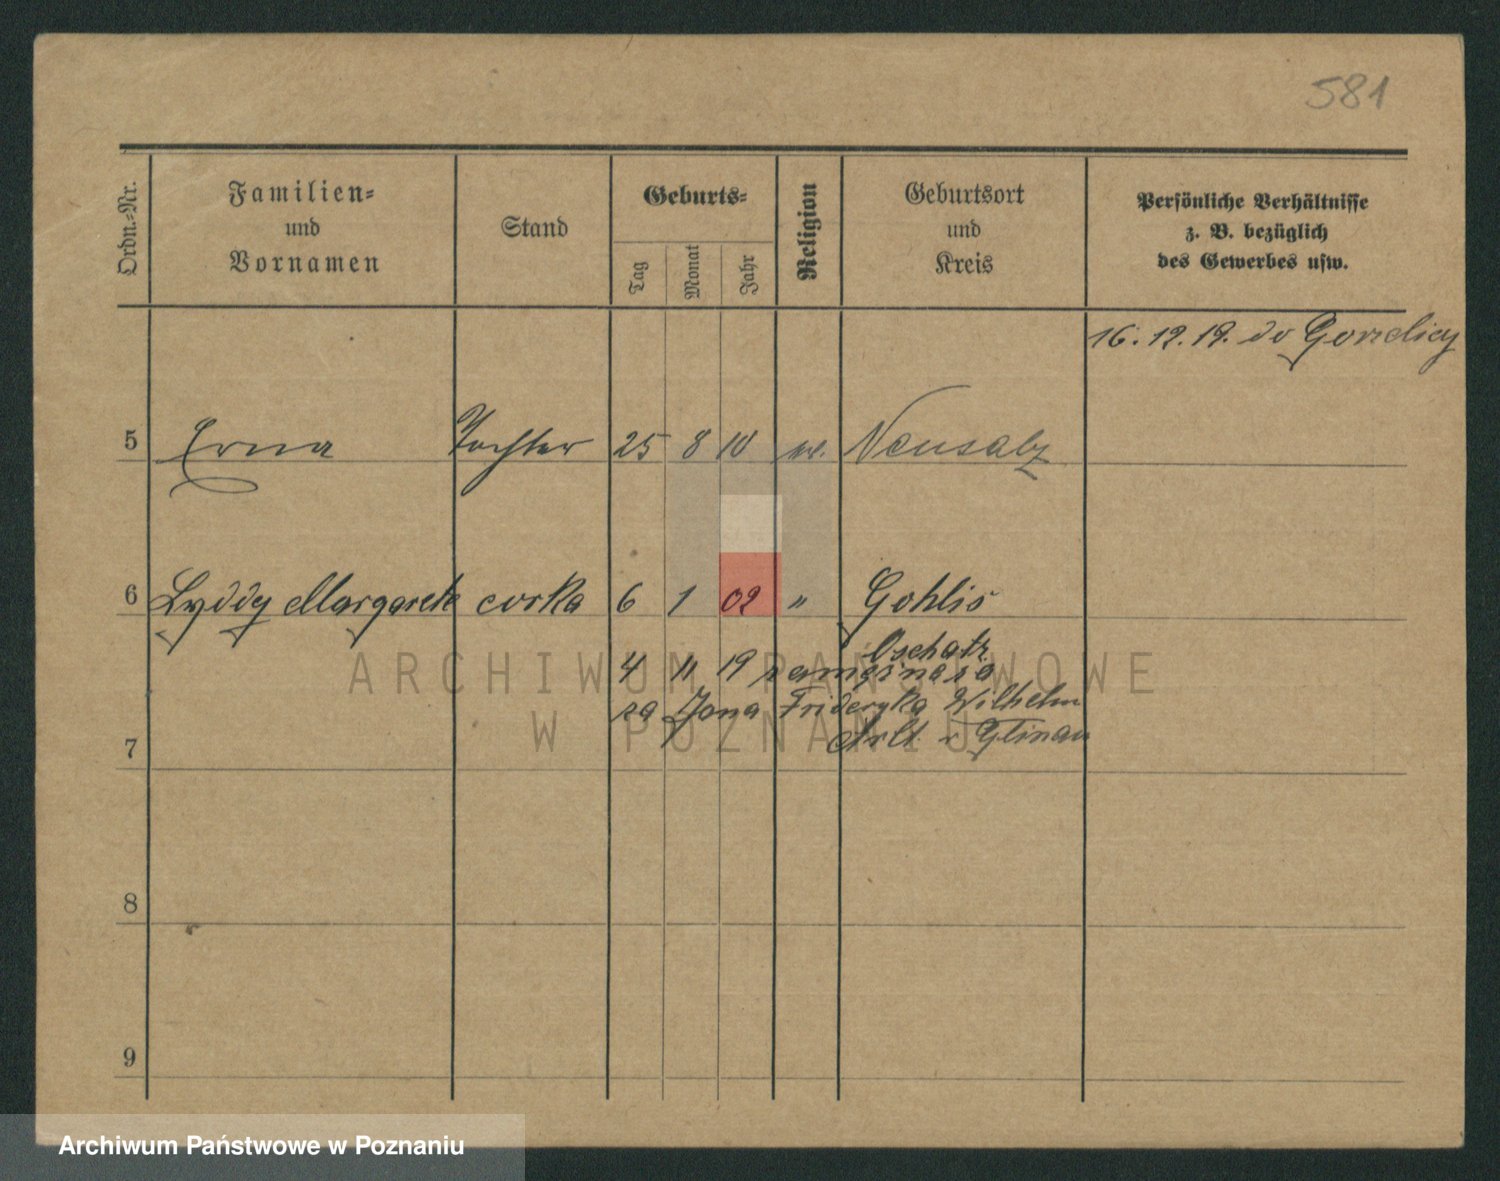 581
Ordn.=Nr.
Familien=
und
Vornamen
Stand
Geburts=
Tag
Monat
Jahr
Religion
Geburtsort
und
Kreis
Persönliche Verhältnisse
z. B. bezüglich
des Gewerbes usw.
16. 12. 19. do Goerlicy
5 Erna Tochter 25 8 10 Neusalz
6 Lyddy Margarete corka 6 1 02 " Gohlis
Oschatz
4 11 19
za Jana Fryderyka Wilhelm
7 Arlt
8
9
ARCHIWUM PAŃSTWOWE
W POZNANIU
Archiwum Państwowe w Poznaniu